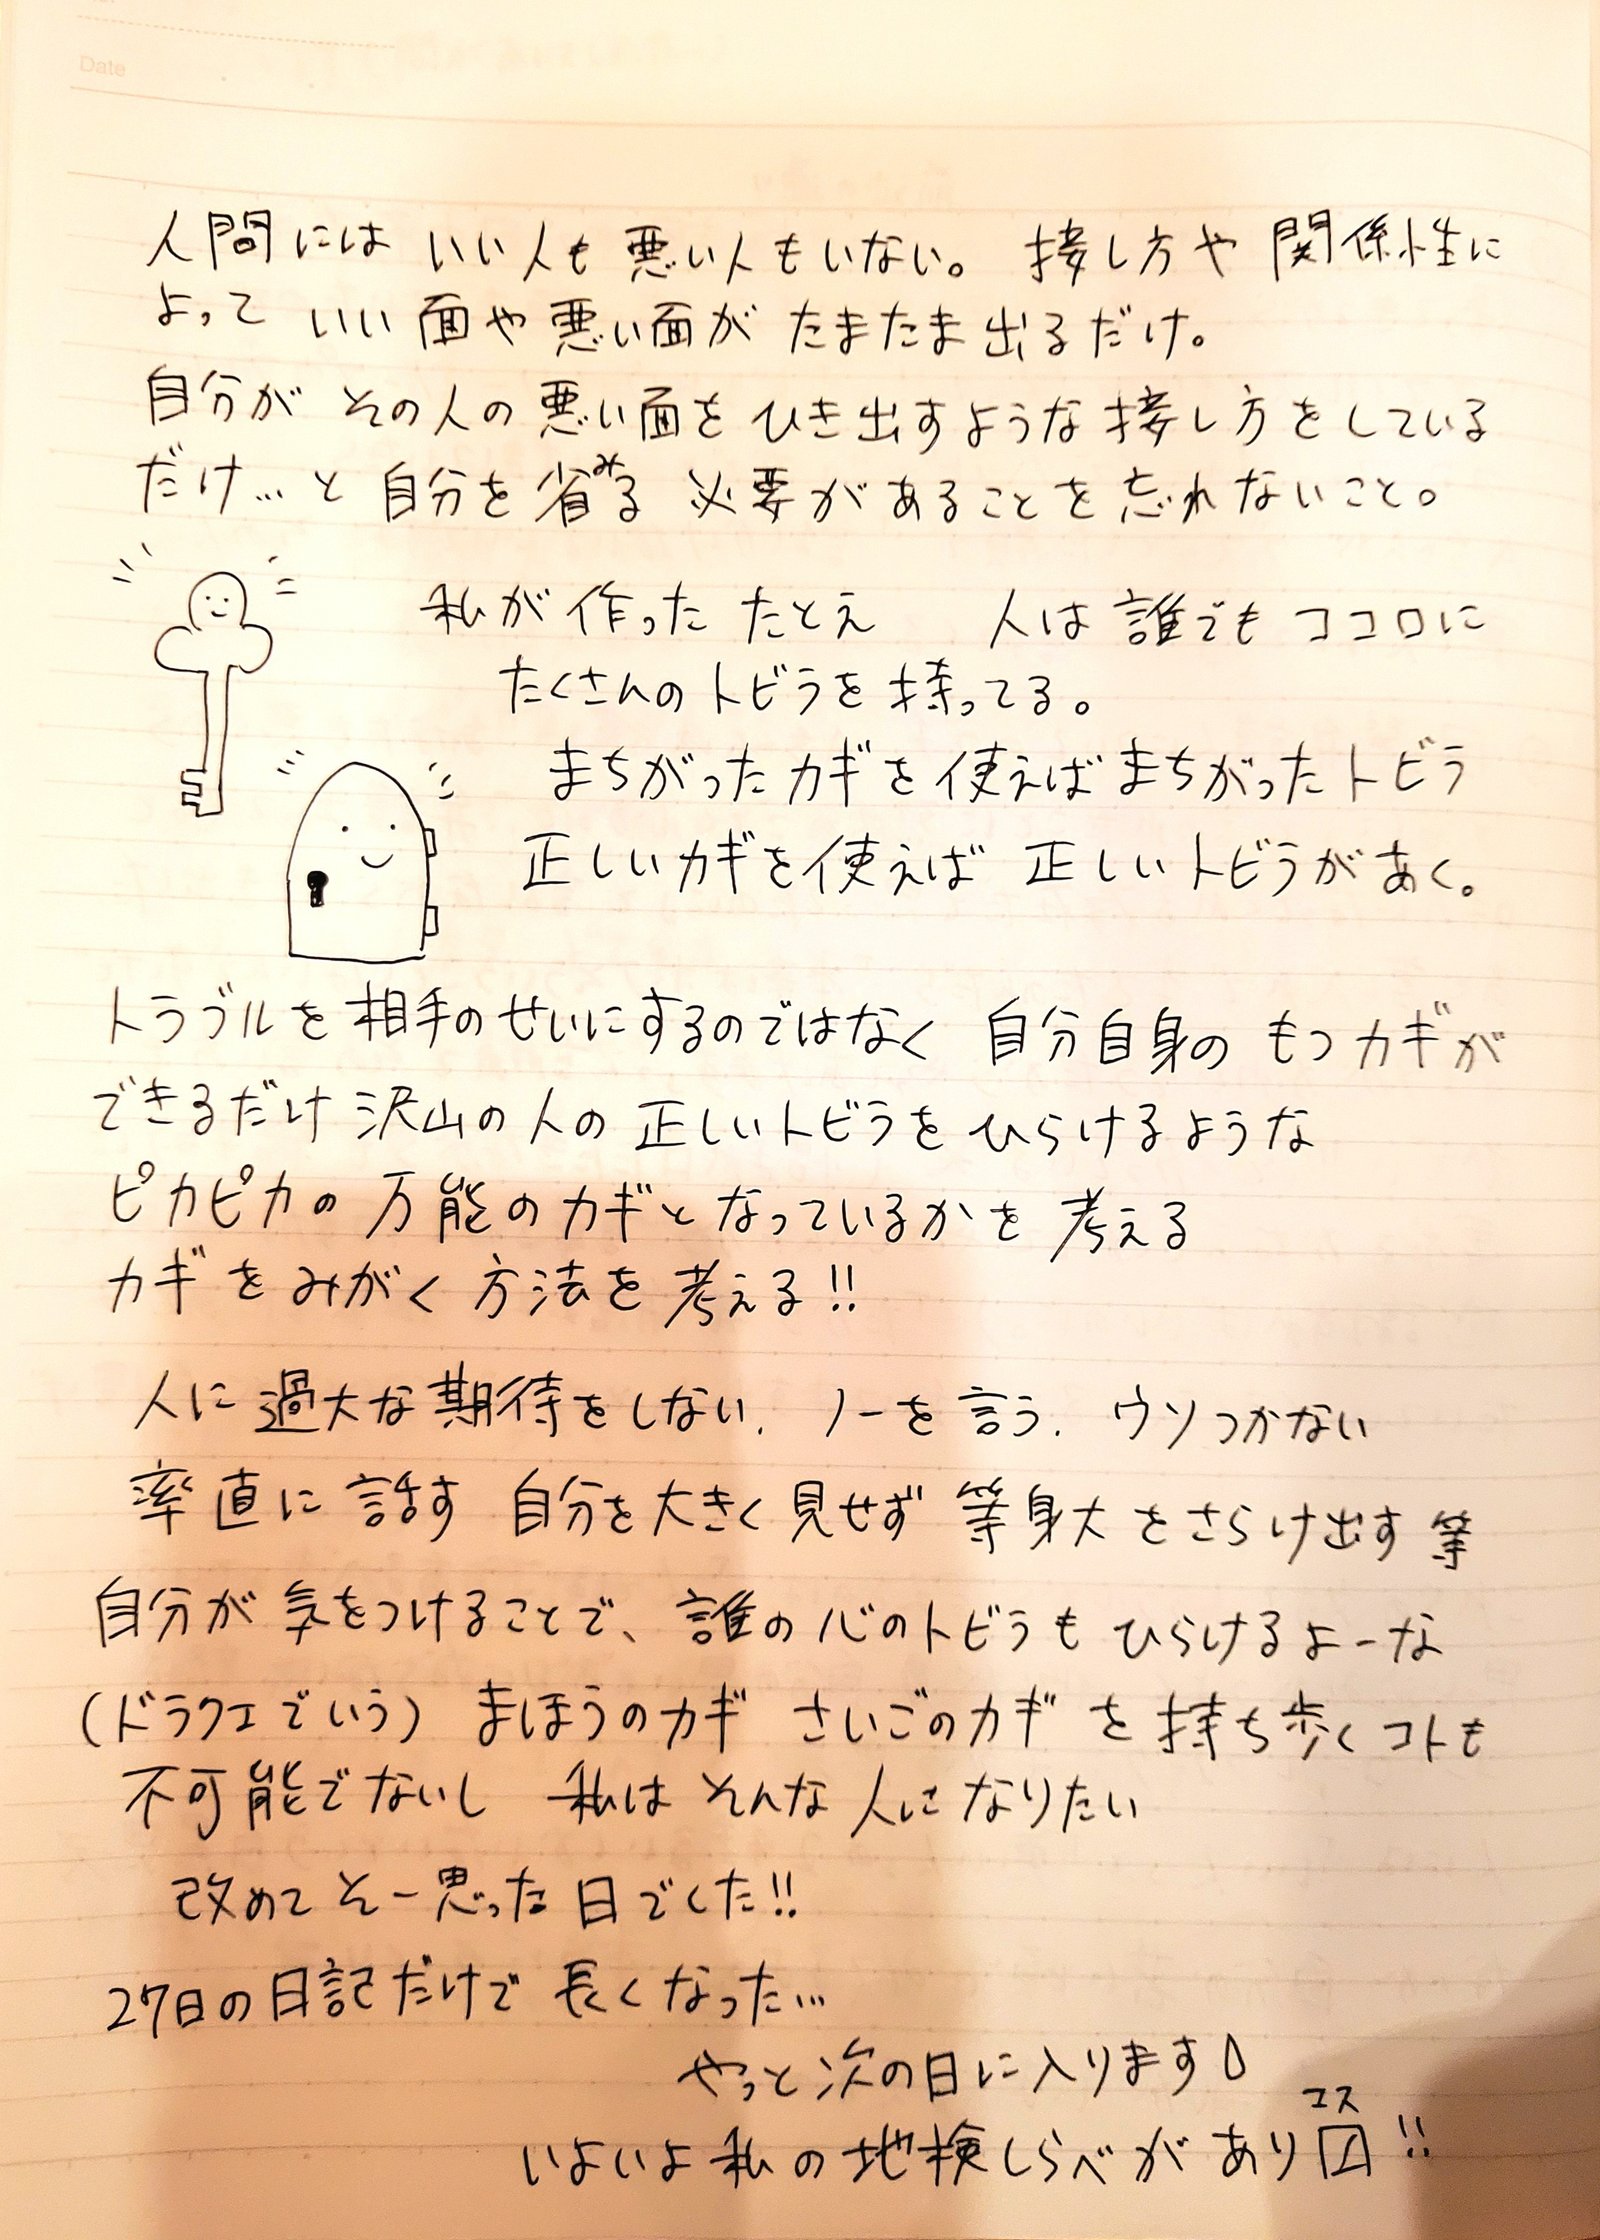 Date
人間には いい人も 悪い人もいない。 接し方や 関係性に
よって いい 面や悪い面が たまたま出るだけ。
自分が その人の悪い面を ひき出すような接し方をしている
だけ… と 自分を省みる 必要があることを忘れないこと。
私が作った たとえ 人は誰でも ココロに
たくさんのトビラを持ってる。
まちがったカギを使えばまちがったトビラ
正しいカギを使えば 正しいトビラがあく。
トラブルを相手のせいにするのではなく 自分自身の もつカギが
できるだけ沢山の人の正しいトビラをひらけるような
ピカピカの 万能のカギとなっているかを 考える
カギをみがく方法を考える!!
人に過大な期待をしない. ノーを言う. ウソつかない
率直に話す 自分を大きく見せず 等身大をさらけ出す 等
自分が気をつけることで、誰の心のトビラも ひらけるよーな
(ドラクエでいう) まほうのカギ さいごのカギ を持ち歩くコトも
不可能でないし 私は そんな人になりたい
改めてそー思った日でした!!
27日の日記だけで 長くなった…
やっと次の日に入ります
コス
いよいよ私の地検しらべがあり〼!!